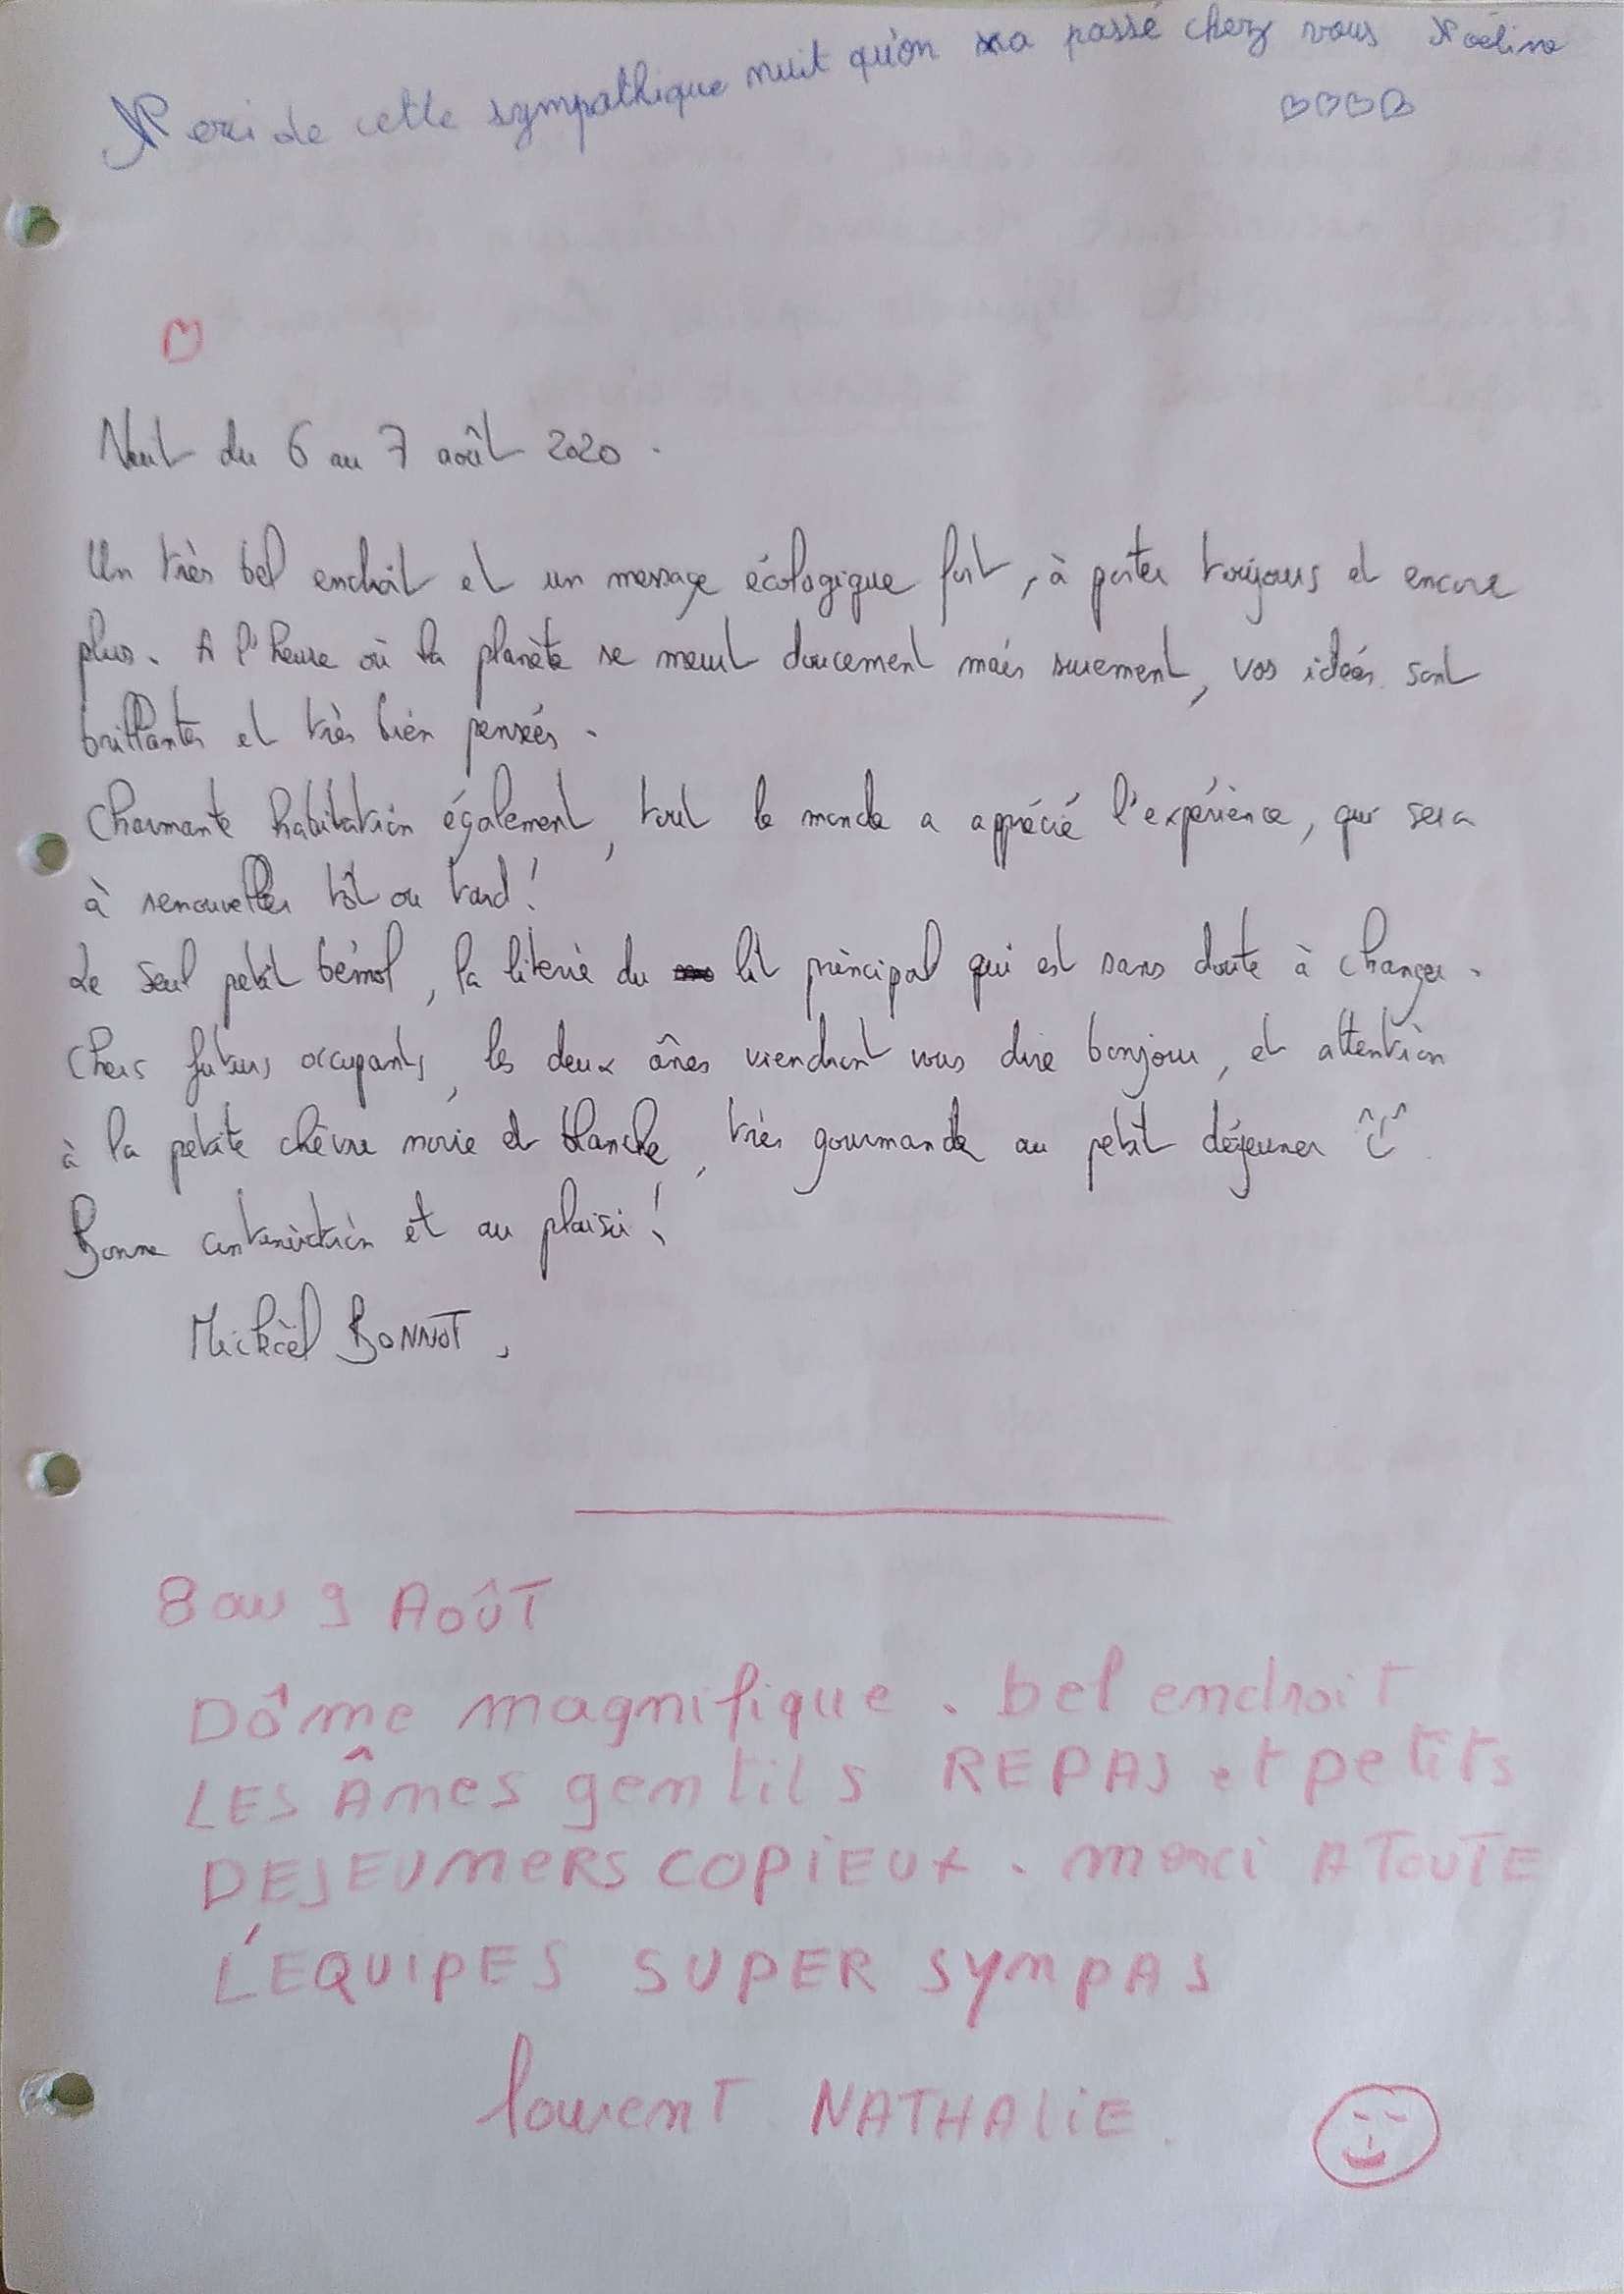 Merci de cette sympathique nuit qu'on a passé chez vous Noéline
Nuit du 6 au 7 août 2020.
Un très bel endroit et un message écologique fort, à porter toujours et encore
plus. A l'heure où la planète se meurt doucement mais surement, vos idées sont
brillantes et très bien pensées.
Charmante habitation également, tout le monde a apprécié l'expérience, qui sera
à renouveller tôt ou tard !
Le seul petit bémol, la literie du lit principal qui est sans doute à changer.
Chers futurs occupants, les deux ânes viendront vous dire bonjour, et attention
à la petite chèvre noire et blanche, très gourmande au petit déjeuner
Bonne continuation et au plaisir !
Mickaël BONNOT.
8 au 9 AOÛT
DÔme magnifique. bel endroit
LES Ânes gentils REPAS et petits
DEJEUnERS COPIEUX. merci A TOUTE
L'EQUIPES SUPER SymPAS
lourent NATHALiE.